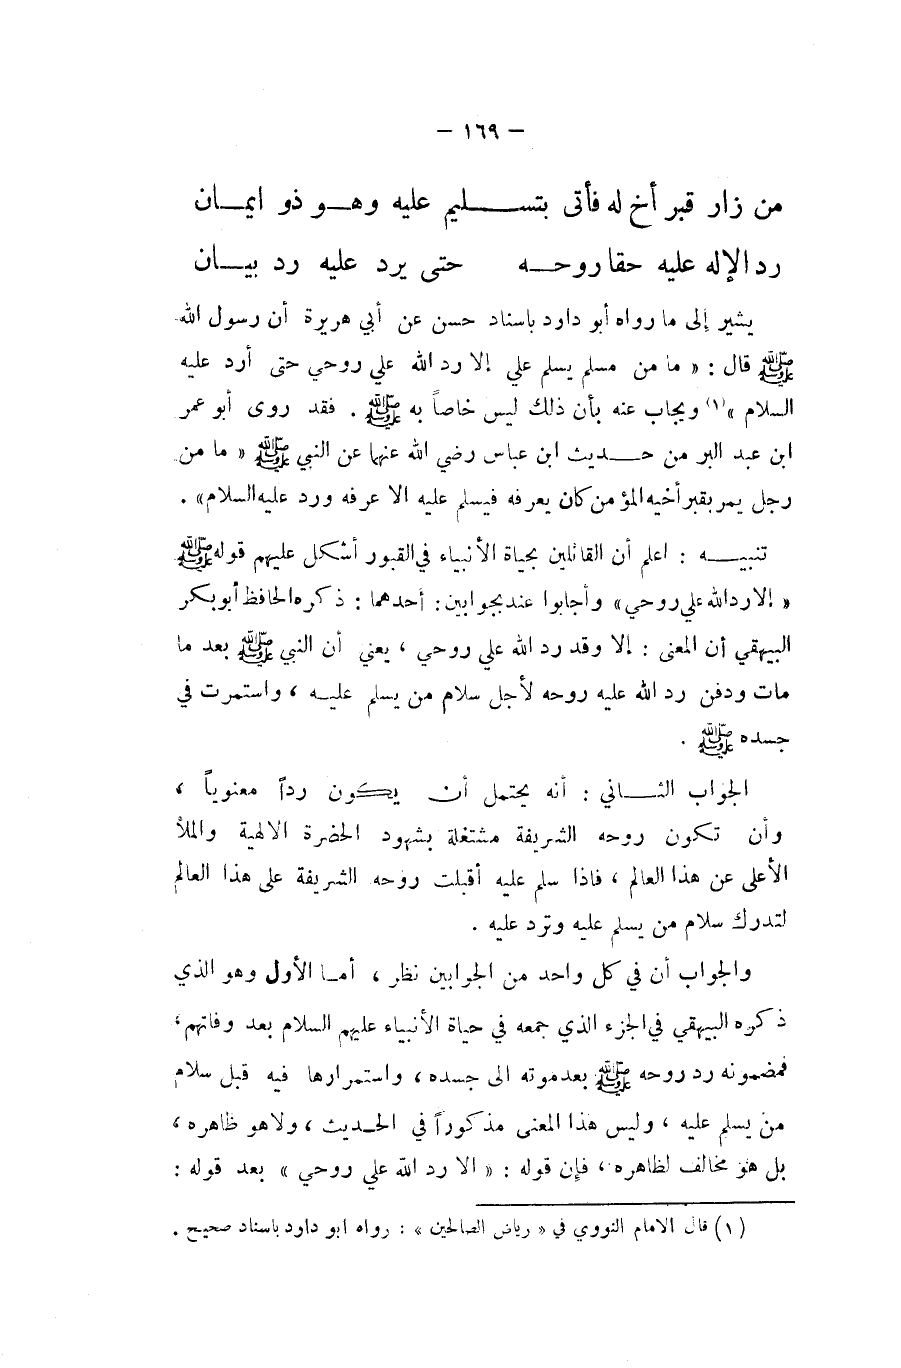 – ١٦٩ –
من زار قبر أخ له فأتى بتسليم عليه وهو ذو ايمان
رد الإله عليه حقا روحه حتى يرد عليه رد بيان
يشير إلى ما رواه أبو داود باسناد حسن عن أبي هريرة أن رسول الله
ﷺ قال : « ما من مسلم يسلم علي إلا رد الله علي روحي حتى أرد عليه
السلام »(١) ويجاب عنه بأن ذلك ليس خاصاً به ﷺ . فقد روى أبو عمر
ابن عبد البر من حديث ابن عباس رضي الله عنهما عن النبي ﷺ « ما من
رجل يمر بقبر أخيه المؤمن كان يعرفه فيسلم عليه الا عرفه ورد عليه السلام» .
تنبيه : اعلم أن القائلين بحياة الأنبياء في القبور أشكل عليهم قوله ﷺ
« إلا رد الله علي روحي» وأجابوا عنه بجوابين : أحدهما : ذكره الحافظ أبو بكر
البيهقي أن المعنى : إلا وقد رد الله علي روحي ، يعني أن النبي ﷺ بعد ما
مات ودفن رد الله عليه روحه لأجل سلام من يسلم عليه ، واستمرت في
جسده ﷺ .
الجواب الثاني : أنه يحتمل أن يكون رداً معنوياً ،
وأن تكون روحه الشريفة مشتغلة بشهود الحضرة الالهية والملأ
الأعلى عن هذا العالم ، فاذا سلم عليه أقبلت روحه الشريفة على هذا العالم
لتدرك سلام من يسلم عليه وترد عليه .
والجواب أن في كل واحد من الجوابين نظر ، أما الأول وهو الذي
ذكره البيهقي في الجزء الذي جمعه في حياة الأنبياء عليهم السلام بعد وفاتهم ،
فمضمونه رد روحه ﷺ بعد موته الى جسده ، واستمرارها فيه قبل سلام
من يسلم عليه ، وليس هذا المعنى مذكوراً في الحديث ، ولا هو ظاهره ،
بل هو مخالف لظاهره ، فإن قوله : « الا رد الله علي روحي » بعد قوله :
(١) قال الامام النووي في « رياض الصالحين » : رواه ابو داود باسناد صحيح .